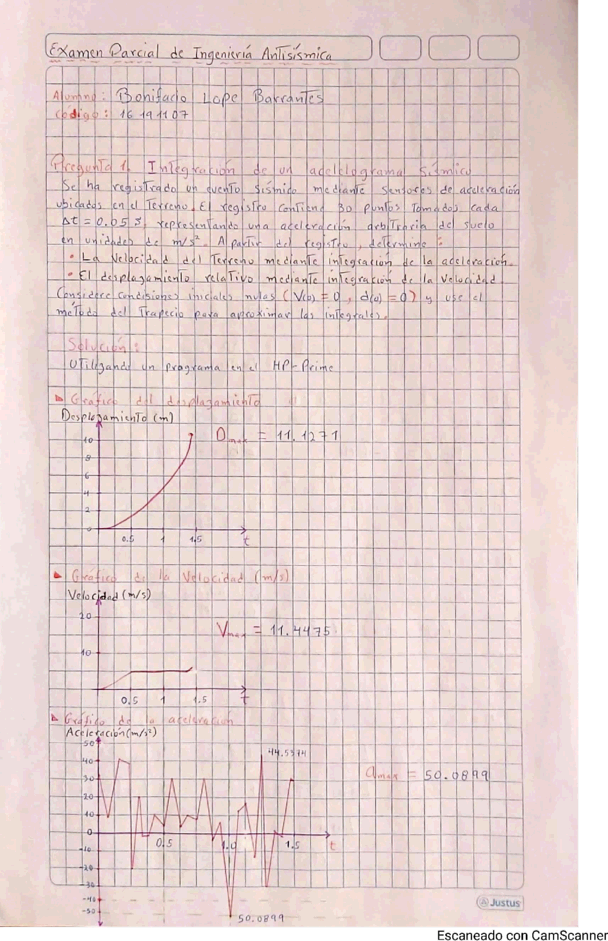 Examen Parcial de Ingeniería Antisísmica
Alumno: Bonifacio Lope Barrantes
Codigo: 16191107
Pregunta 1. Integración de un acelelograma Sísmico
Se ha registrado un evento sísmico mediante sensores de aceleración
ubicados en el Terreno. El registro contiene 30 puntos Tomados cada
Δt = 0.05 s, representando una aceleración arbitraria del suelo
en unidades de m/s². A partir del registro, determine:
• La Velocidad del Terreno mediante integración de la aceleración.
• El desplazamiento relativo mediante integración de la Velocidad
Considere condiciones iniciales nulas (V(0) = 0, d(0) = 0) y use el
método del Trapecio para aproximar las integrales.
Solución:
Utilizando un programa en el HP-Prime
Gráfico del desplazamiento
Desplazamiento (m)
Dmax = 11.1271
10
8
6
4
2
0
0.5 1 1.5 t
Gráfico de la Velocidad (m/s)
Velocidad (m/s)
20
Vmax = 11.4475
10
0.5 1 1.5 t
Gráfico de la aceleración
Aceleración (m/s²)
50
44.5574
40
amax = 50.0899
30
20
10
0
0.5 1.0 1.5 t
-10
-20
-30
-40
-50
50.0899
Justus
Escaneado con CamScanner